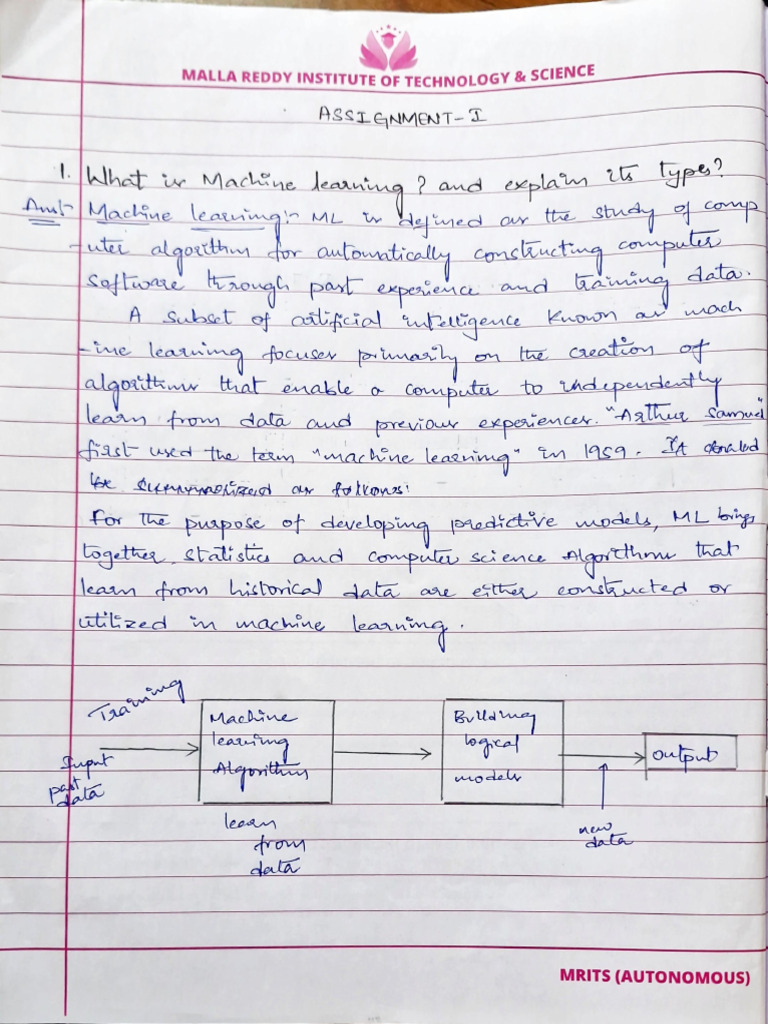 MALLA REDDY INSTITUTE OF TECHNOLOGY & SCIENCE
ASSIGNMENT-I
1. What is Machine learning? and explain its types?
Ans:- Machine learning:- ML is defined as the study of comp
-uter algorithm for automatically constructing computer
software through past experience and training data.
A subset of artificial intelligence known as mach
-ine learning focuses primarily on the creation of
algorithms that enable a computer to independently
learn from data and previous experiences. "Arthur Samuel"
first used the term "machine learning" in 1959. It
be summarized as follows:
For the purpose of developing predictive models, ML brings
together statistics and computer science Algorithms that
learn from historical data are either constructed or
utilized in machine learning.
Training
Input
past
data
Machine
learning
Algorithms
learn
from
data
Building
logical
models
new
data
output
MRITS (AUTONOMOUS)